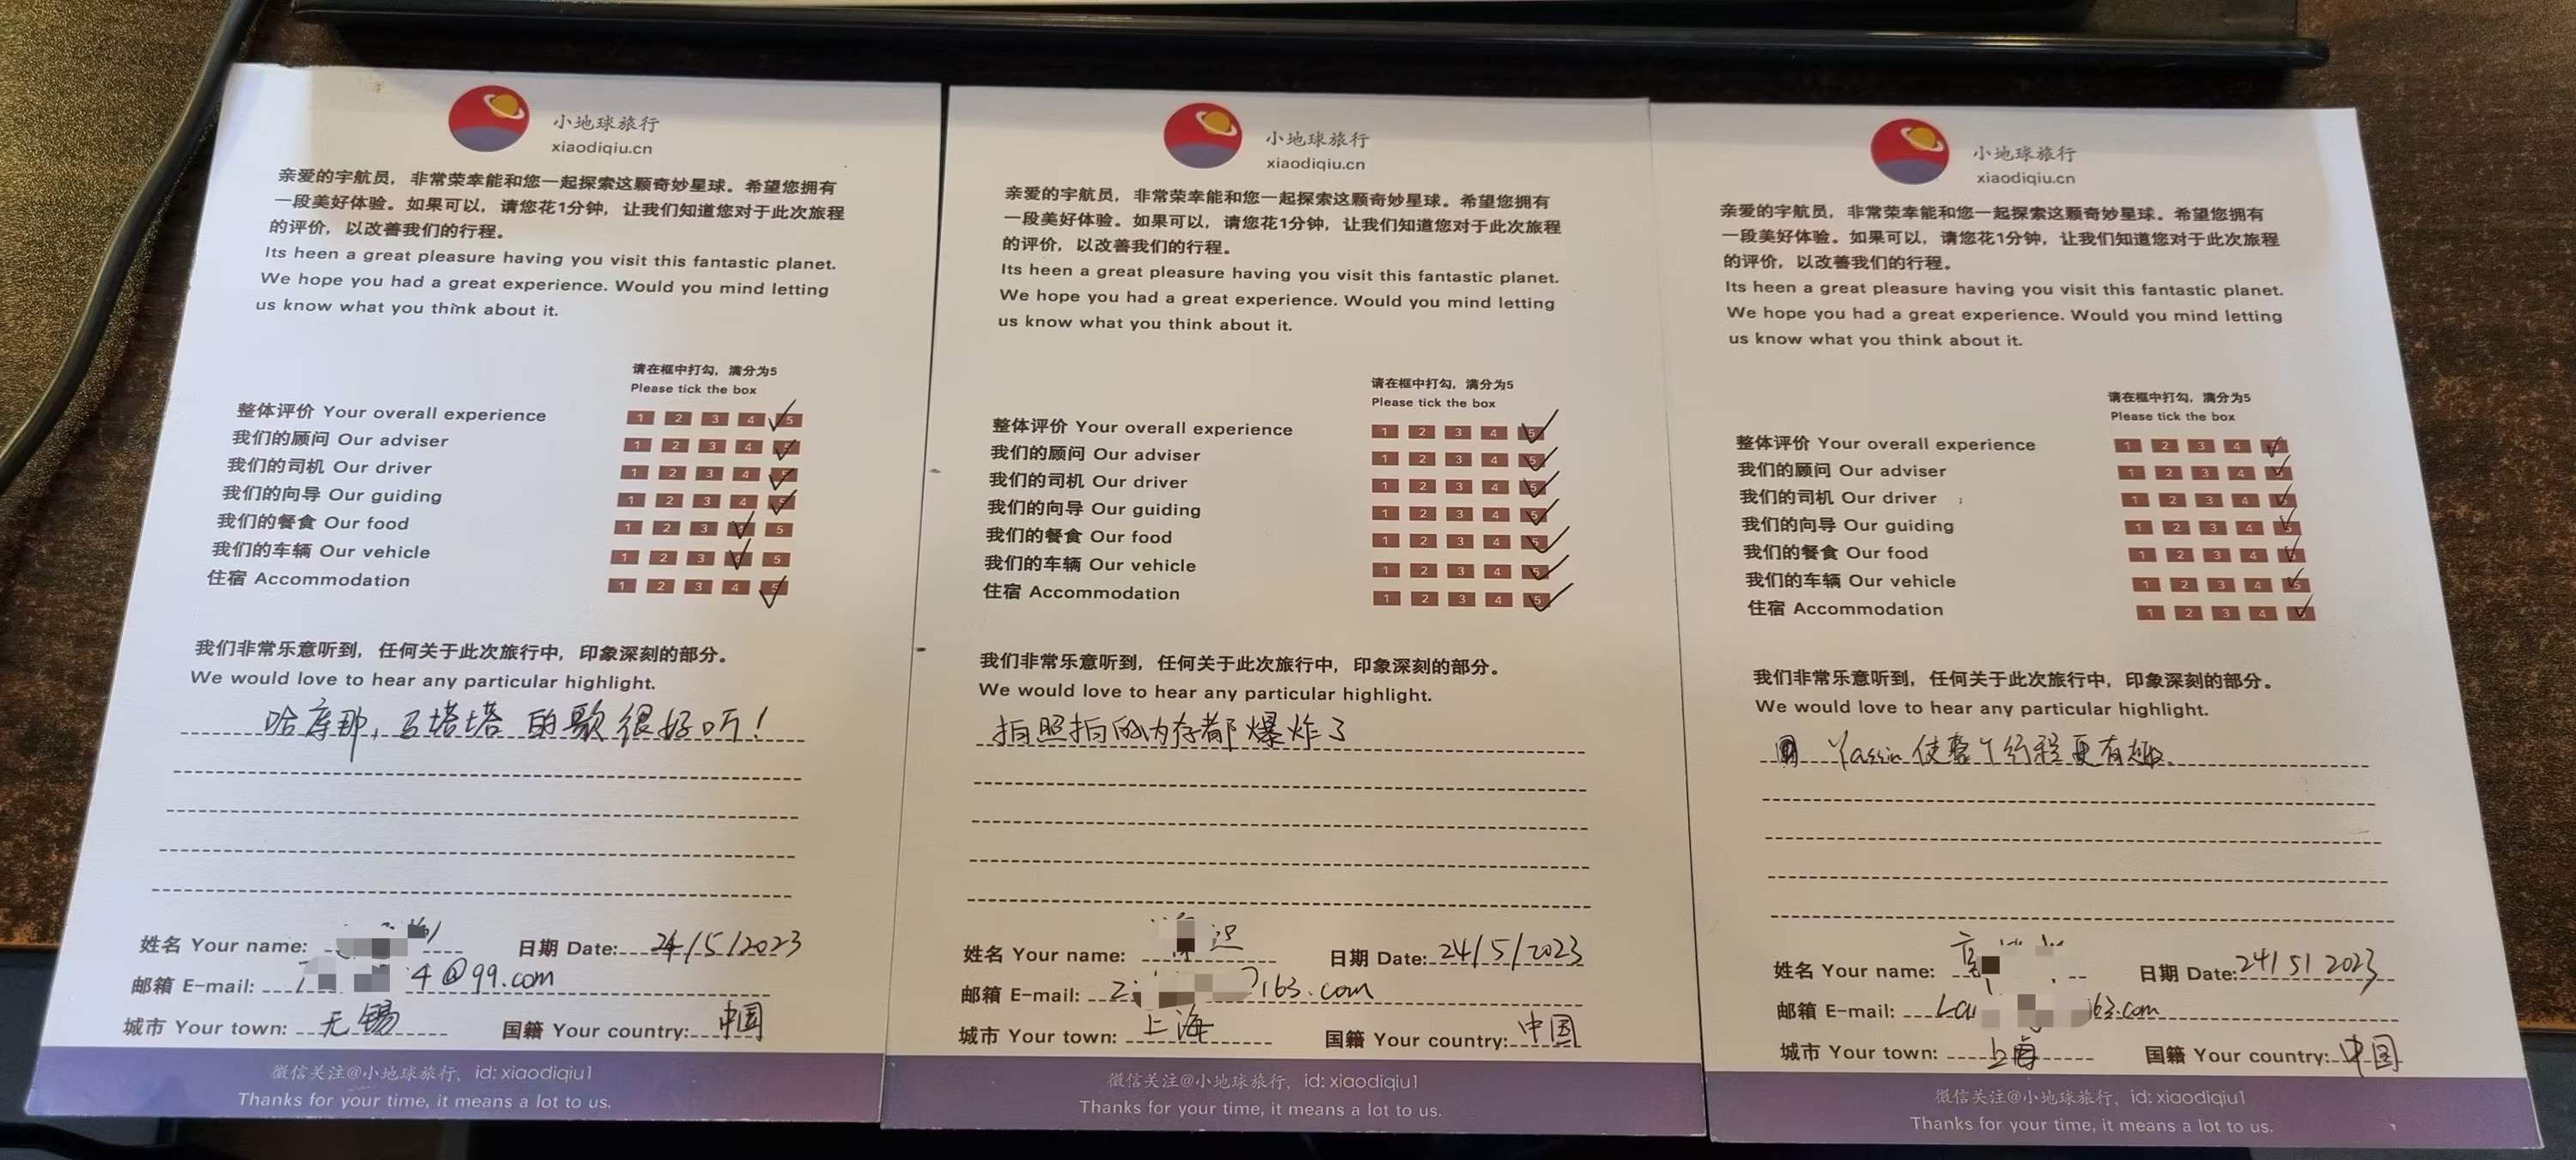 小地球旅行
xiaodiqiu.cn
亲爱的宇航员，非常荣幸能和您一起探索这颗奇妙星球。希望您拥有
一段美好体验。如果可以，请您花1分钟，让我们知道您对于此次旅程
的评价，以改善我们的行程。
Its heen a great pleasure having you visit this fantastic planet.
We hope you had a great experience. Would you mind letting
us know what you think about it.
请在框中打勾，满分为5
Please tick the box
整体评价 Your overall experience 1 2 3 4 5
我们的顾问 Our adviser 1 2 3 4
我们的司机 Our driver 1 2 3 4
我们的向导 Our guiding 1 2 3 4
我们的餐食 Our food 1 2 3 5
我们的车辆 Our vehicle 1 2 3 5
住宿 Accommodation 1 2 3 4 5
我们非常乐意听到，任何关于此次旅行中，印象深刻的部分。
We would love to hear any particular highlight.
哈库那，马塔塔 的歌很好听！
姓名 Your name: 日期 Date: 24/5/2023
邮箱 E-mail: 4@99.com
城市 Your town: 无锡 国籍 Your country: 中国
微信关注@小地球旅行，id: xiaodiqiu1
Thanks for your time, it means a lot to us.
小地球旅行
xiaodiqiu.cn
亲爱的宇航员，非常荣幸能和您一起探索这颗奇妙星球。希望您拥有
一段美好体验。如果可以，请您花1分钟，让我们知道您对于此次旅程
的评价，以改善我们的行程。
Its heen a great pleasure having you visit this fantastic planet.
We hope you had a great experience. Would you mind letting
us know what you think about it.
请在框中打勾，满分为5
Please tick the box
整体评价 Your overall experience 1 2 3 4 5
我们的顾问 Our adviser 1 2 3 4 5
我们的司机 Our driver 1 2 3 4 5
我们的向导 Our guiding 1 2 3 4 5
我们的餐食 Our food 1 2 3 4 5
我们的车辆 Our vehicle 1 2 3 4 5
住宿 Accommodation 1 2 3 4 5
我们非常乐意听到，任何关于此次旅行中，印象深刻的部分。
We would love to hear any particular highlight.
拍照拍的内存都爆炸了
姓名 Your name: 日期 Date: 24/5/2023
邮箱 E-mail: 163.com
城市 Your town: 上海 国籍 Your country: 中国
微信关注@小地球旅行，id: xiaodiqiu1
Thanks for your time, it means a lot to us.
小地球旅行
xiaodiqiu.cn
亲爱的宇航员，非常荣幸能和您一起探索这颗奇妙星球。希望您拥有
一段美好体验。如果可以，请您花1分钟，让我们知道您对于此次旅程
的评价，以改善我们的行程。
Its heen a great pleasure having you visit this fantastic planet.
We hope you had a great experience. Would you mind letting
us know what you think about it.
请在框中打勾，满分为5
Please tick the box
整体评价 Your overall experience 1 2 3 4
我们的顾问 Our adviser 1 2 3 4
我们的司机 Our driver 1 2 3 4 5
我们的向导 Our guiding 1 2 3 4 5
我们的餐食 Our food 1 2 3 4
我们的车辆 Our vehicle 1 2 3 4 5
住宿 Accommodation 1 2 3 4
我们非常乐意听到，任何关于此次旅行中，印象深刻的部分。
We would love to hear any particular highlight.
Yassin 使整个行程更有趣。
姓名 Your name: 日期 Date: 24/5/2023
邮箱 E-mail: 63.com
城市 Your town: 上海 国籍 Your country: 中国
微信关注@小地球旅行，id: xiaodiqiu1
Thanks for your time, it means a lot to us.